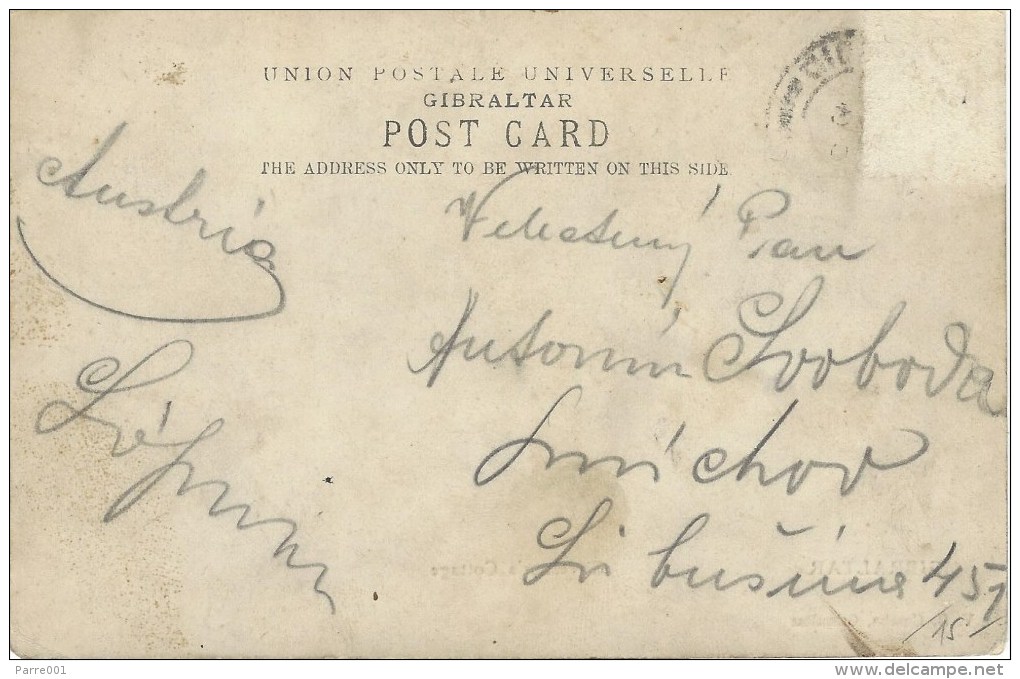 UNION POSTALE UNIVERSELLE
GIBRALTAR
POST CARD
THE ADDRESS ONLY TO BE WRITTEN ON THIS SIDE
Austria
Velectěný Pan
Antonín Svoboda
Smíchov
Libušina 451
/15/
Parre001
www.delcampe.net